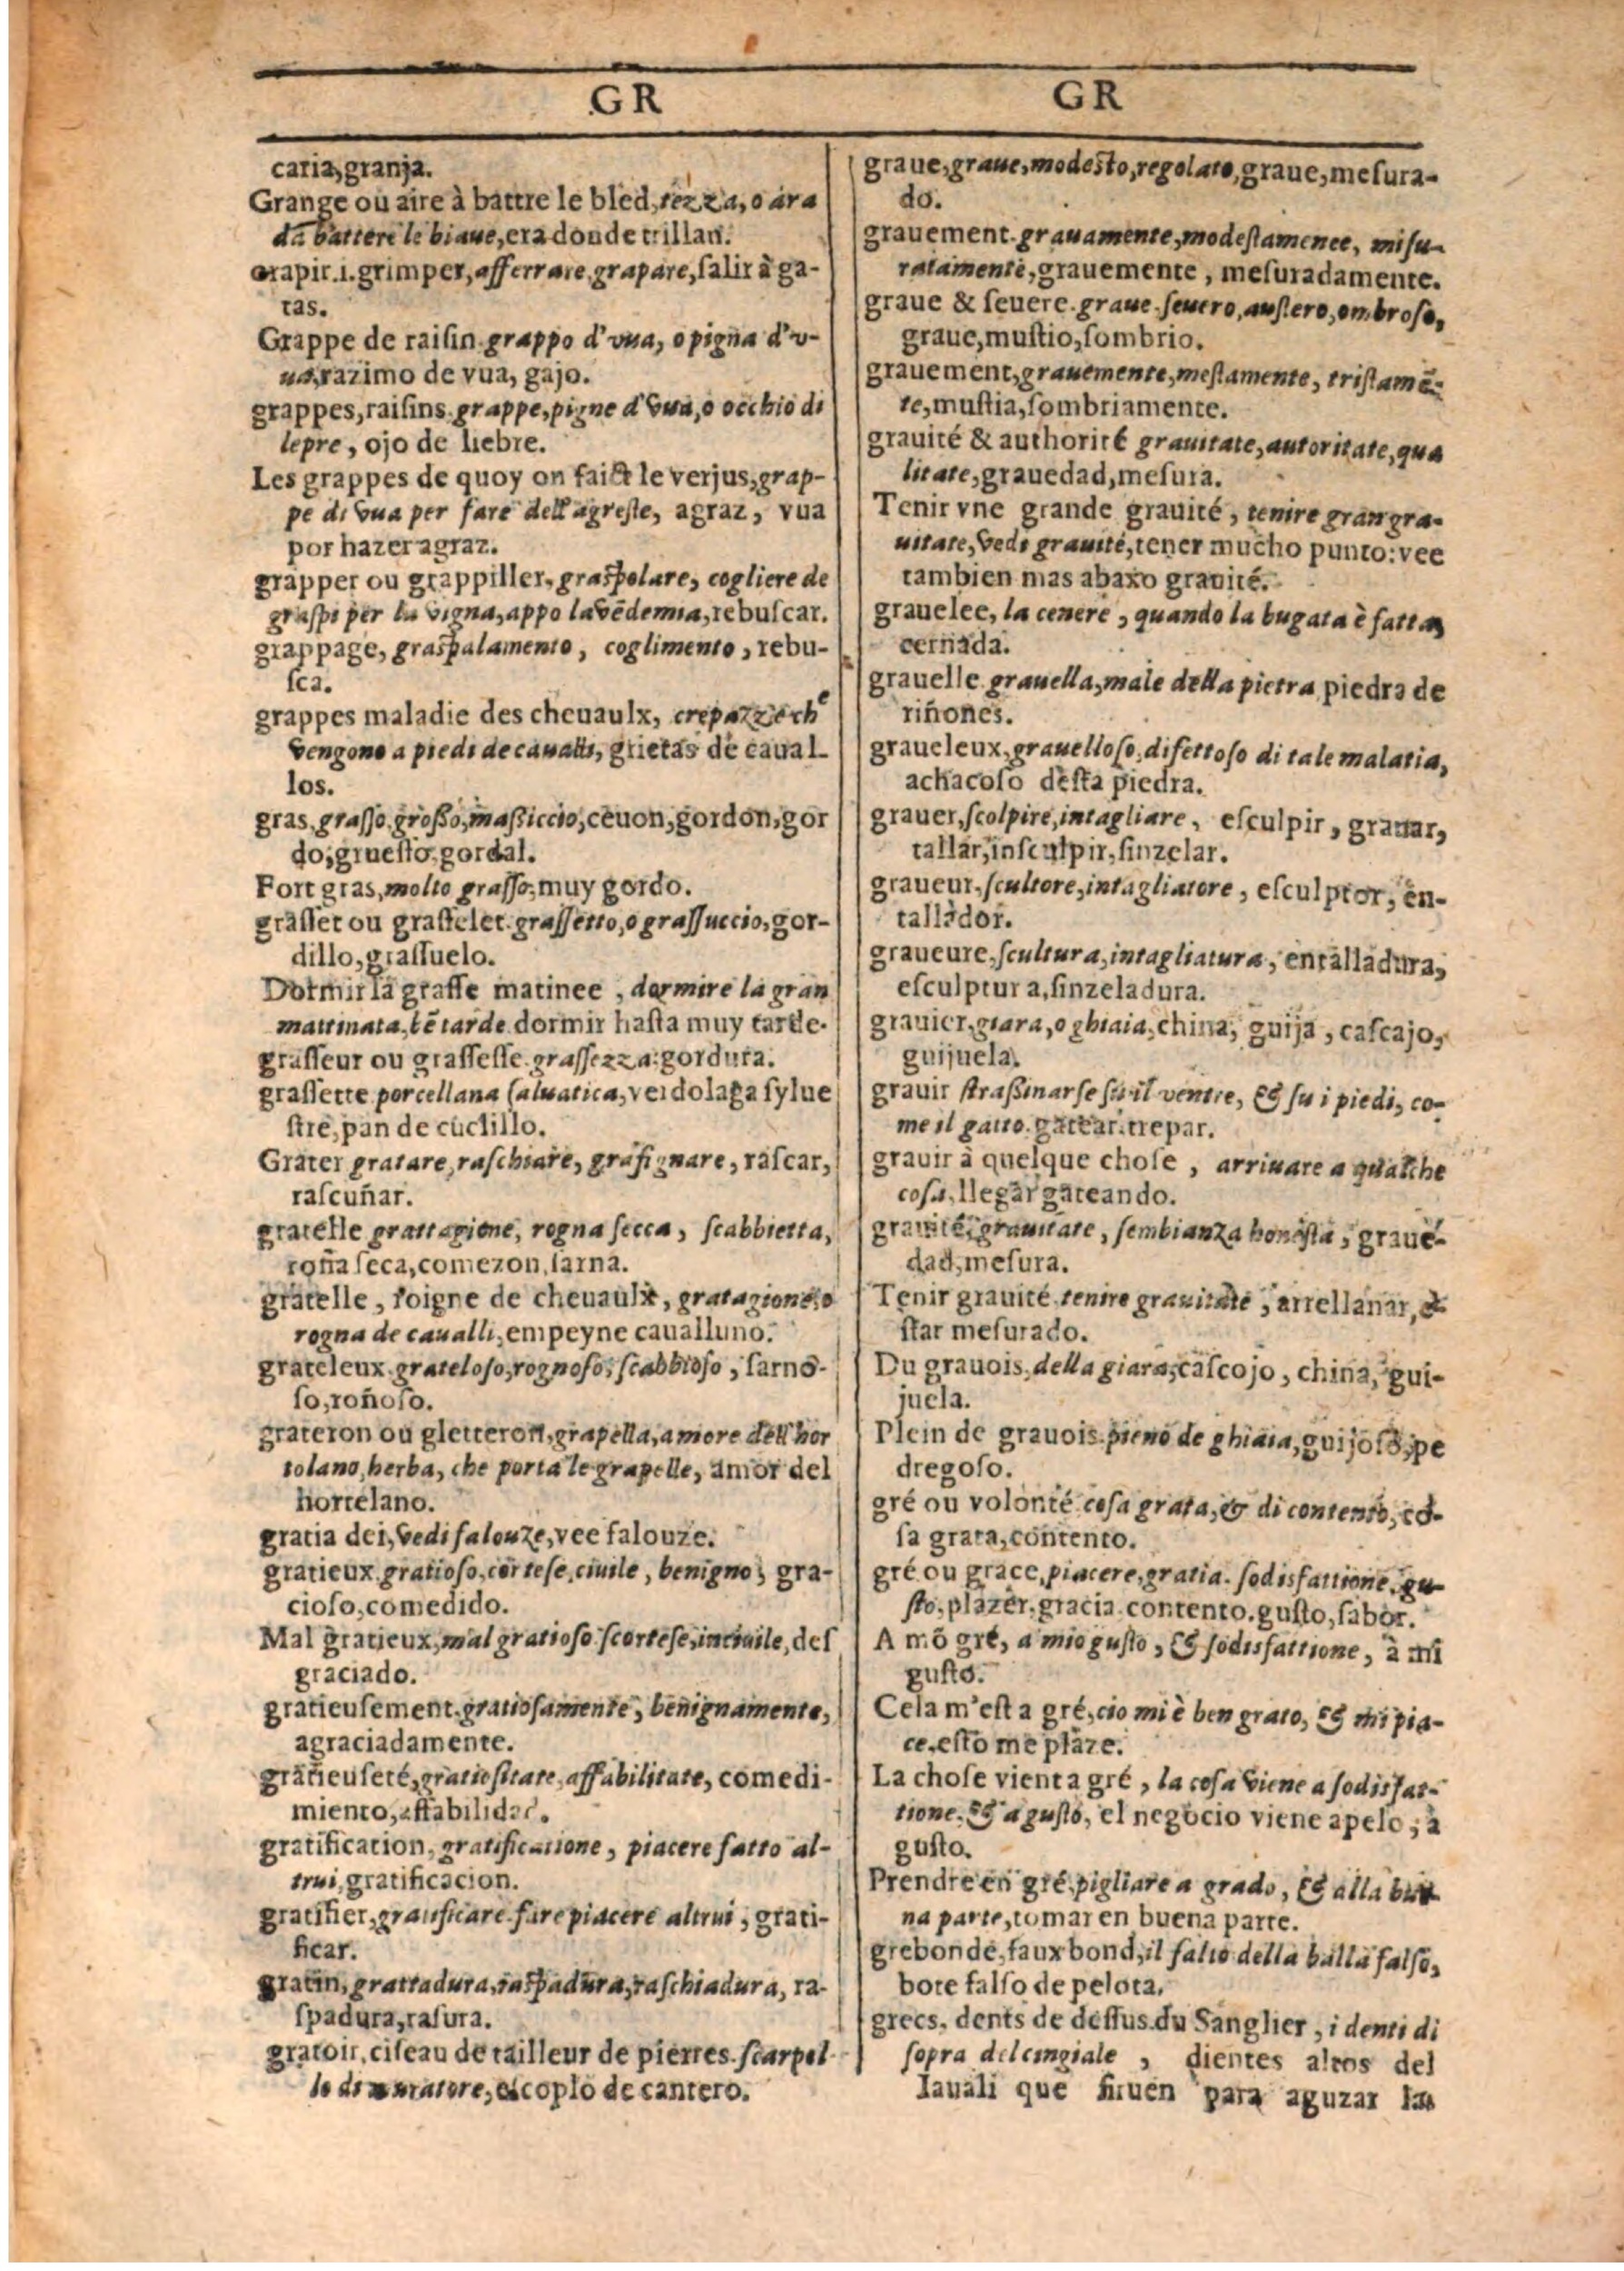 GR
caria, granja.
Grange ou aire à battre le bled, tezza, o ara
da battere le biaue, era donde trillan.
grapir .i. grimper, afferrare, grapare, salir à ga-
tas.
Grappe de raiſin. grappo d'vua, o pigna d'v-
ua, razimo de vua, gajo.
grappes, raiſins. grappe, pigne d'vua, o occhio di
lepre, ojo de liebre.
Les grappes de quoy on faict le verjus, grap-
pe di vua per fare dell'agreſte, agraz, vua
por hazer agraz.
grapper ou grappiller, graſpolare, cogliere de
graſpi per la vigna, appo la vēdemia, rebuſcar.
grappage, graſpalamento, coglimento, rebu-
ſca.
grappes maladie des cheuaulx, crepazze che
vengono a piedi de caualli, grietas de caual-
los.
gras, graſſo, groſſo, maſſiccio, ceuon, gordon, gor
do, grueſſo, gordal.
Fort gras, molto graſſo, muy gordo.
graſſet ou graſſelet. graſſetto, o graſſuccio, gor-
dillo, graſſuelo.
Dormir la graſſe matinee, dormire la gran
mattinata, bē tarde. dormir haſta muy tarde.
graſſeur ou graſſeſſe. graſſezza. gordura.
graſſette porcellana ſaluatica, verdolaga ſylue
ſtre, pan de cuclillo.
Grater gratare, raſchiare, grafignare, raſcar,
raſcuñar.
gratelle grattagione, rogna ſecca, ſcabbietta,
roña ſeca, comezon, ſarna.
gratelle, roigne de cheuaulx, gratagione, o
rogna de caualli, empeyne caualluno.
grateleux. grateloso, rognoſo, ſcabbioſo, ſarno-
ſo, roñoſo.
grateron ou gletteron, grapella, amore dell'hor
tolano, herba, che porta le grapelle, amor del
hortelano.
gratia dei, vedi falouze, vee falouze.
gratieux. gratioſo, corteſe, ciuile, benigno, gra-
cioſo, comedido.
Mal gratieux, mal gratioſo. ſcorteſe, inciuile, deſ
graciado.
gratieuſement. gratioſamente, benignamente,
agraciadamente.
gratieuſeté, gratioſitate, affabilitate, comedi-
miento, affabilidad.
gratification, gratificatione, piacere fatto al-
trui, gratificacion.
gratifier, gratificare. fare piacere altrui, grati-
ficar.
gratin, grattadura, raſpadura, raſchiadura, ra-
ſpadura, raſura.
gratoir, ciſeau de tailleur de pierres. ſcarpel
lo di muratore, eſcoplo de cantero.
GR
graue, graue, modeſto, regolato, graue, meſura-
do.
grauement. grauamente, modeſtamenee, miſu-
ratamente, grauemente, meſuradamente.
graue & ſeuere. graue. ſeuero, auſtero, ombroſo,
graue, muſtio, ſombrio.
grauement, grauemente, meſtamente, triſtamē-
te, muſtia, ſombriamente.
grauité & authorité grauitate, autoritate, qua
litate, grauedad, meſura.
Tenir vne grande grauité, tenire gran gra-
uitate, vedi grauité, tener mucho punto: vee
tambien mas abaxo grauité.
grauelee, la cenere, quando la bugata è fatta,
cernada.
grauelle. grauella, male della pietra. piedra de
riñones.
graueleux, grauelloſo, difettoſo di tale malatia,
achacoſo deſta piedra.
grauer, ſcolpire, intagliare, eſculpir, grauar,
tallar, inſculpir, ſinzelar.
graueur, ſcultore, intagliatore, eſculptor, en-
tallador.
graueure, ſcultura, intagliatura, entalladura,
eſculptura, ſinzeladura.
grauier, giara, o ghiaia, china, guija, caſcajo,
guijuela.
grauir ſtraſſinarſe ſu il ventre, & ſu i piedi, co-
me il gatto. gatear. trepar.
grauir à quelque choſe, arriuare a qualche
coſa, llegar gateando.
grauité, grauitate, ſembianza honeſta, graue-
dad, meſura.
Tenir grauité. tenire grauitate, arrellanar, e-
ſtar meſurado.
Du grauois, della giara, caſcojo, china, gui-
juela.
Plein de grauois. pieno de ghiaia, guijoſo, pe
dregoſo.
gré ou volonté coſa grata, & di contento, co-
ſa grata, contento.
gré ou grace, piacere, gratia. ſodisfattione. gu-
ſto, plazer, gracia. contento. guſto, ſabor.
A mō gré, a mio guſto, & ſodisfattione, à mi
guſto.
Cela m'eſt a gré, cio mi è ben grato, & mi pia-
ce. eſto me plaze.
La choſe vient a gré, la coſa viene a ſodisfat-
tione. & a guſto, el negocio viene a pelo, à
guſto.
Prendre en gré. pigliare a grado, & alla buo-
na parte, tomar en buena parte.
grebonde, faux bond, il ſalto della balla falſo,
bote falſo de pelota.
grecs, dents de deſſus du Sanglier, i denti di
ſopra del cingiale, dientes altos del
Iauali que ſiruen para aguzar las